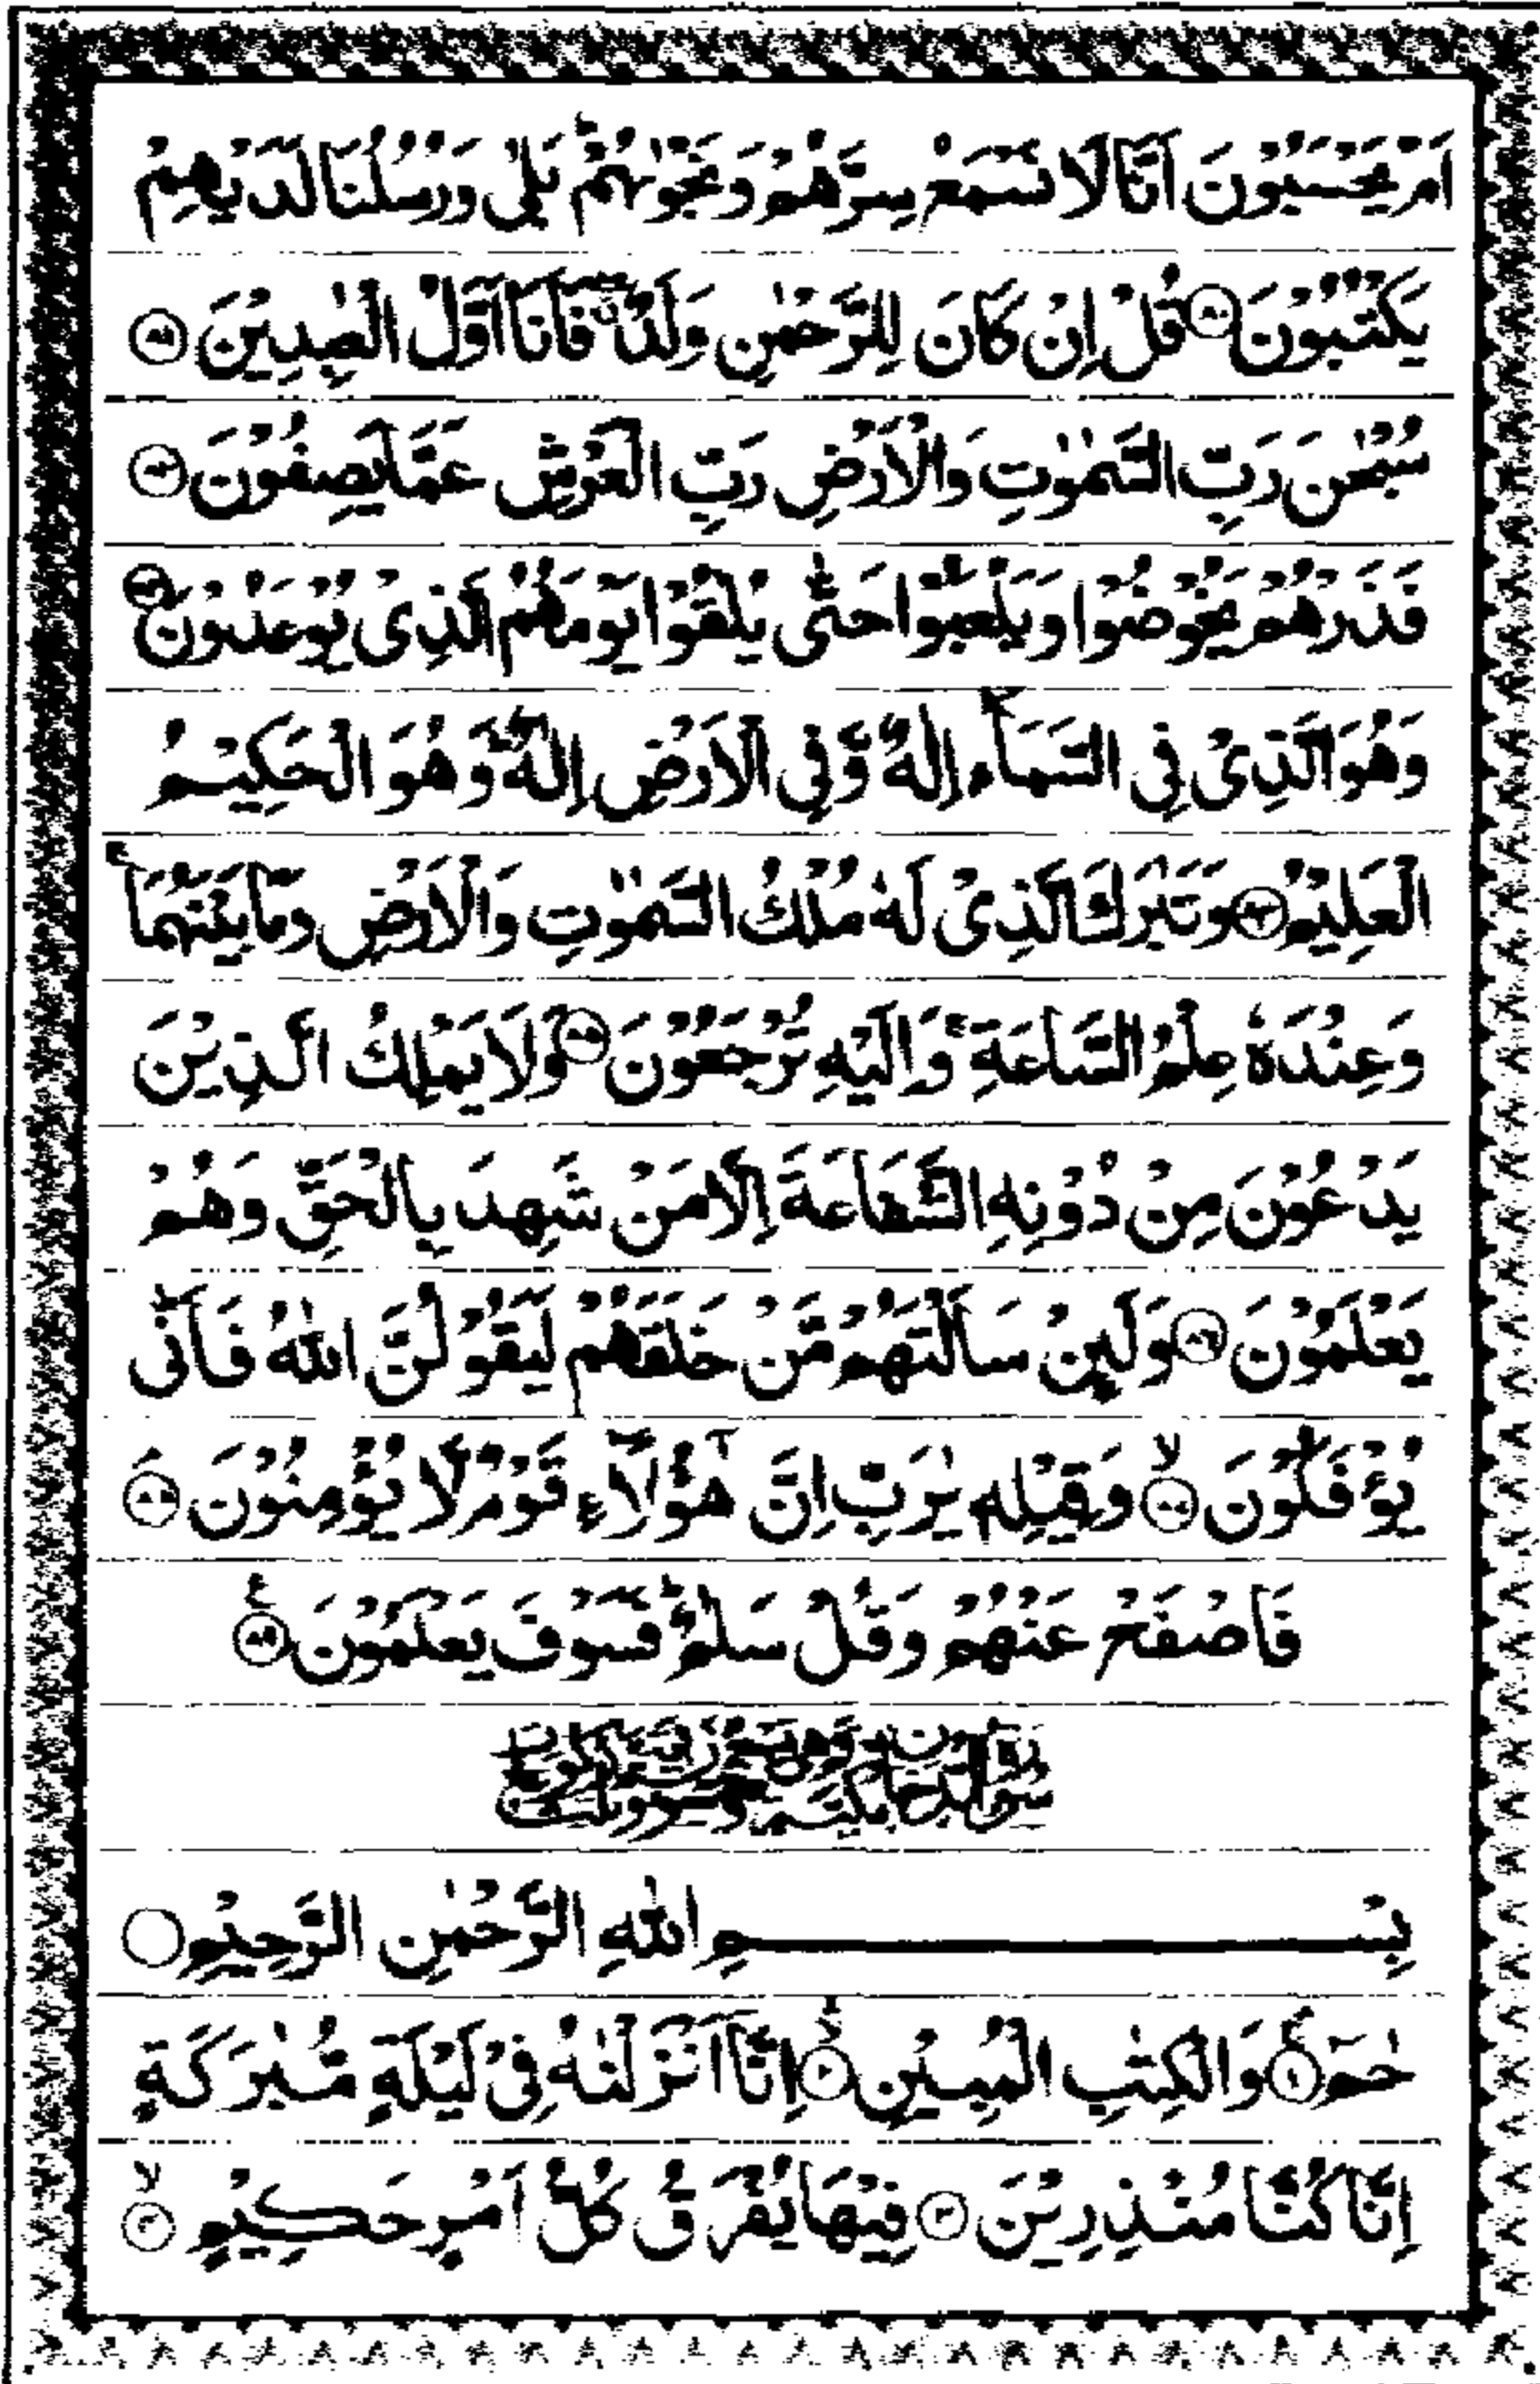 اَمْ يَحْسَبُوْنَ اَنَّا لَا نَسْمَعُ سِرَّهُمْ وَنَجْوٰىهُمْ ؕ بَلٰى وَرُسُلُنَا لَدَيْهِمْ
يَكْتُبُوْنَ ﴿۸۰﴾ قُلْ اِنْ كَانَ لِلرَّحْمٰنِ وَلَدٌ ۖ فَاَنَا اَوَّلُ الْعٰبِدِيْنَ ﴿۸۱﴾
سُبْحٰنَ رَبِّ السَّمٰوٰتِ وَالْاَرْضِ رَبِّ الْعَرْشِ عَمَّا يَصِفُوْنَ ﴿۸۲﴾
فَذَرْهُمْ يَخُوْضُوْا وَيَلْعَبُوْا حَتّٰى يُلٰقُوْا يَوْمَهُمُ الَّذِىْ يُوْعَدُوْنَ ﴿۸۳﴾
وَهُوَ الَّذِىْ فِى السَّمَآءِ اِلٰهٌ وَّفِى الْاَرْضِ اِلٰهٌ ؕ وَهُوَ الْحَكِيْمُ
الْعَلِيْمُ ﴿۸۴﴾ وَتَبٰرَكَ الَّذِىْ لَهٗ مُلْكُ السَّمٰوٰتِ وَالْاَرْضِ وَمَا بَيْنَهُمَا ۚ
وَعِنْدَهٗ عِلْمُ السَّاعَةِ ۚ وَاِلَيْهِ تُرْجَعُوْنَ ﴿۸۵﴾ وَلَا يَمْلِكُ الَّذِيْنَ
يَدْعُوْنَ مِنْ دُوْنِهِ الشَّفَاعَةَ اِلَّا مَنْ شَهِدَ بِالْحَقِّ وَهُمْ
يَعْلَمُوْنَ ﴿۸۶﴾ وَلَئِنْ سَاَلْتَهُمْ مَّنْ خَلَقَهُمْ لَيَقُوْلُنَّ اللّٰهُ فَاَنّٰى
يُؤْفَكُوْنَ ۙ﴿۸۷﴾ وَقِيْلِهٖ يٰرَبِّ اِنَّ هٰٓؤُلَآءِ قَوْمٌ لَّا يُؤْمِنُوْنَ ۘ﴿۸۸﴾
فَاصْفَحْ عَنْهُمْ وَقُلْ سَلٰمٌ ؕ فَسَوْفَ يَعْلَمُوْنَ ﴿۸۹﴾
بِسْمِ اللّٰهِ الرَّحْمٰنِ الرَّحِيْمِ
حٰمٓ ۚ﴿۱﴾ وَالْكِتٰبِ الْمُبِيْنِ ۙ﴿۲﴾ اِنَّا اَنْزَلْنٰهُ فِىْ لَيْلَةٍ مُّبٰرَكَةٍ
اِنَّا كُنَّا مُنْذِرِيْنَ ﴿۳﴾ فِيْهَا يُفْرَقُ كُلُّ اَمْرٍ حَكِيْمٍ ۙ﴿۴﴾